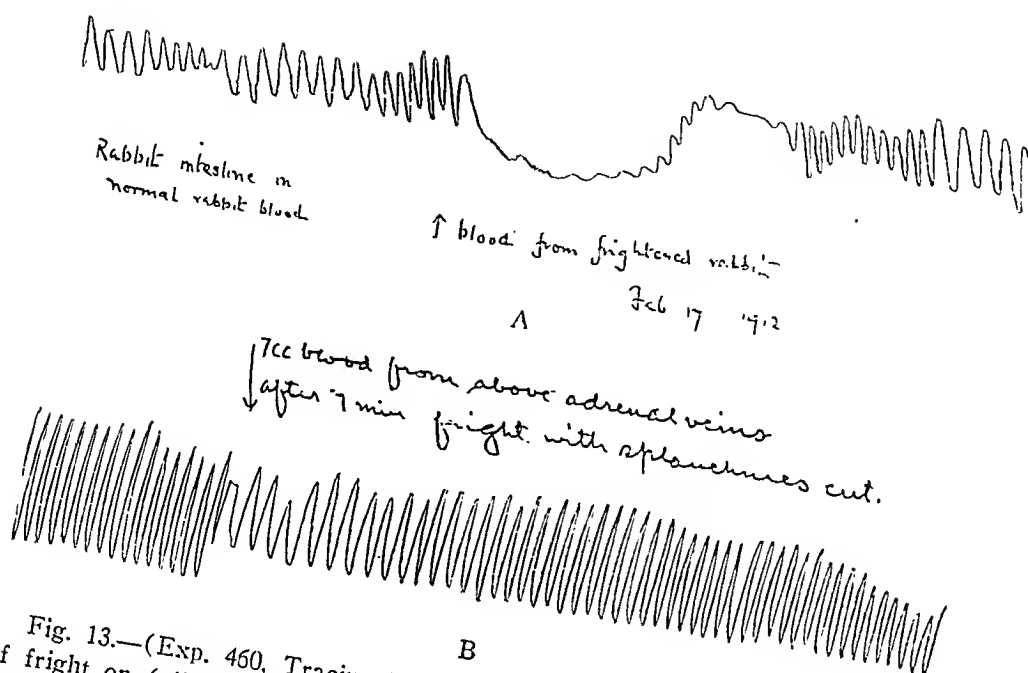 Rabbit intestine in
normal rabbit blood
↑ blood from frightened rabbit
Feb 17 1912
A
↓ 7cc blood from above adrenal veins
after 7 min fright. with splanchnics cut.
B
Fig. 13.—(Exp. 460,
fright on